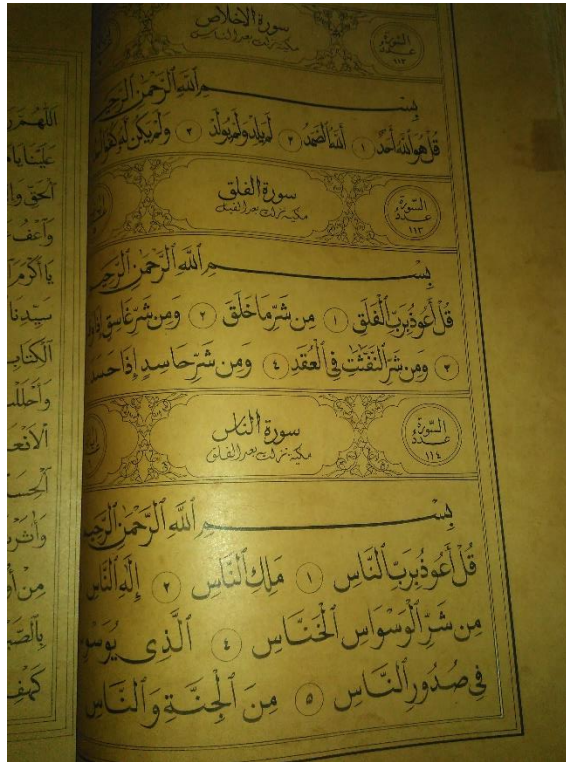 سورة الإخلاص
مكية نزلت بعد الناس
السورة
عدد
١١٣
بِسْمِ ٱللَّهِ ٱلرَّحْمَٰنِ ٱلرَّحِيمِ
قُلْ هُوَ ٱللَّهُ أَحَدٌ ١ ٱللَّهُ ٱلصَّمَدُ ٢ لَمْ يَلِدْ وَلَمْ يُولَدْ ٣ وَلَمْ يَكُن لَّهُ
سورة الفلق
مكية نزلت بعد الفيل
السورة
عدد
١١٣
بِسْمِ ٱللَّهِ ٱلرَّحْمَٰنِ ٱلرَّحِيمِ
قُلْ أَعُوذُ بِرَبِّ ٱلْفَلَقِ ١ مِن شَرِّ مَا خَلَقَ ٢ وَمِن شَرِّ غَاسِقٍ إِذَا
٣ وَمِن شَرِّ ٱلنَّفَّٰثَٰتِ فِي ٱلْعُقَدِ ٤ وَمِن شَرِّ حَاسِدٍ إِذَا حَسَدَ
سورة الناس
مكية نزلت بعد الفلق
السورة
عدد
١١٤
بِسْمِ ٱللَّهِ ٱلرَّحْمَٰنِ ٱلرَّحِيمِ
قُلْ أَعُوذُ بِرَبِّ ٱلنَّاسِ ١ مَلِكِ ٱلنَّاسِ ٢ إِلَٰهِ ٱلنَّاسِ
مِن شَرِّ ٱلْوَسْوَاسِ ٱلْخَنَّاسِ ٤ ٱلَّذِي
فِي صُدُورِ ٱلنَّاسِ ٥ مِنَ ٱلْجِنَّةِ وَٱلنَّاسِ
عَلَيْنَا
سَيِّدِنَا
ٱلْكِتَابِ
مِنْ